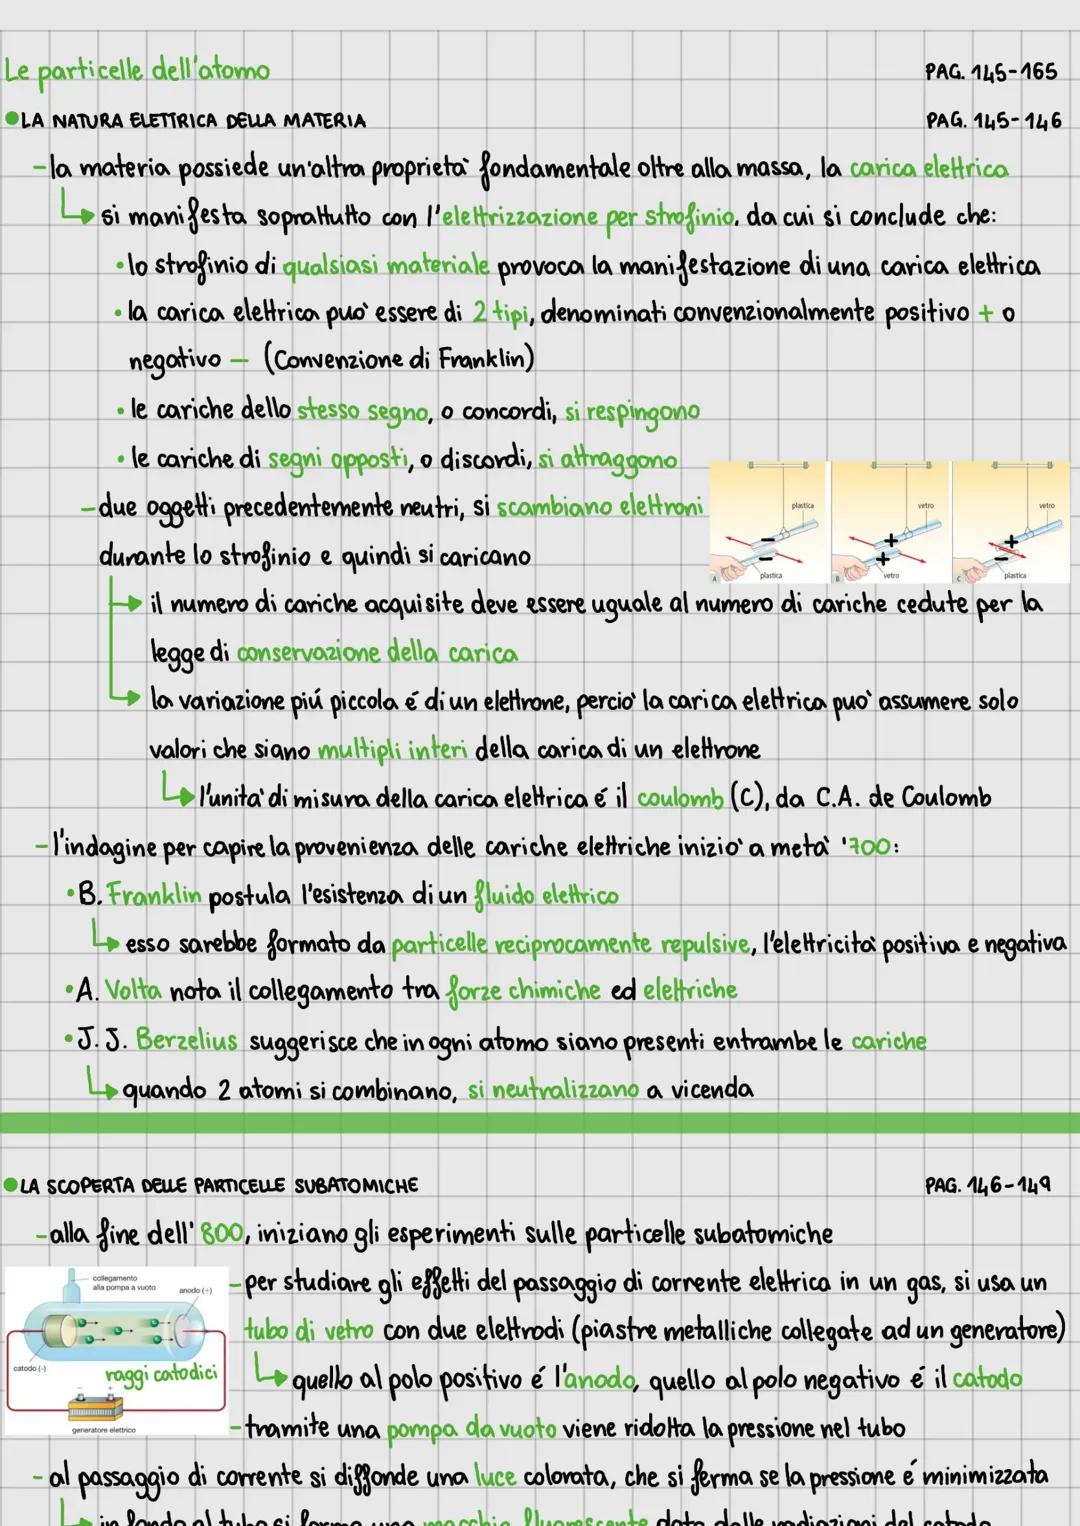 Le particelle dell'atomo
PAG. 145-165
LA NATURA ELETTRICA DELLA MATERIA
PAG. 145-146
- la materia possiede un'altra proprietà fondamentale oltre alla massa, la carica elettrica
si manifesta soprattutto con l'elettrizzazione per strofinio, da cui si conclude che:
• lo strofinio di qualsiasi materiale provoca la manifestazione di una carica elettrica
• la carica elettrica può essere di 2 tipi, denominati convenzionalmente positivo + o
negativo - (Convenzione di Franklin)
• le cariche dello stesso segno, o concordi, si respingono
• le cariche di segni opposti, o discordi, si attraggono
- due oggetti precedentemente neutri, si scambiano elettroni
durante lo strofinio e quindi si caricano
plastica
-
-
plastica
A
vetro
+
+
vetro
B
vetro
+
-
plastica
C
il numero di cariche acquisite deve essere uguale al numero di cariche cedute per la
legge di conservazione della carica
la variazione piú piccola é di un elettrone, perciò la carica elettrica può assumere solo
valori che siano multipli interi della carica di un elettrone
l'unità di misura della carica elettrica é il coulomb (C), da C.A. de Coulomb
- l'indagine per capire la provenienza delle cariche elettriche iniziò a metà '700:
• B. Franklin postula l'esistenza di un fluido elettrico
esso sarebbe formato da particelle reciprocamente repulsive, l'elettricità positiva e negativa
• A. Volta nota il collegamento tra forze chimiche ed elettriche
• J. J. Berzelius suggerisce che in ogni atomo siano presenti entrambe le cariche
quando 2 atomi si combinano, si neutralizzano a vicenda
LA SCOPERTA DELLE PARTICELLE SUBATOMICHE
PAG. 146-149
- alla fine dell'800, iniziano gli esperimenti sulle particelle subatomiche
collegamento
alla pompa a vuoto
anodo (+)
catodo (-)
raggi catodici
- +
generatore elettrico
- per studiare gli effetti del passaggio di corrente elettrica in un gas, si usa un
tubo di vetro con due elettrodi (piastre metalliche collegate ad un generatore)
quello al polo positivo é l'anodo, quello al polo negativo é il catodo
- tramite una pompa da vuoto viene ridotta la pressione nel tubo
- al passaggio di corrente si diffonde una luce colorata, che si ferma se la pressione é minimizzata
in fondo al tubo si forma una macchia fluorescente data dalle radiazioni del catodo